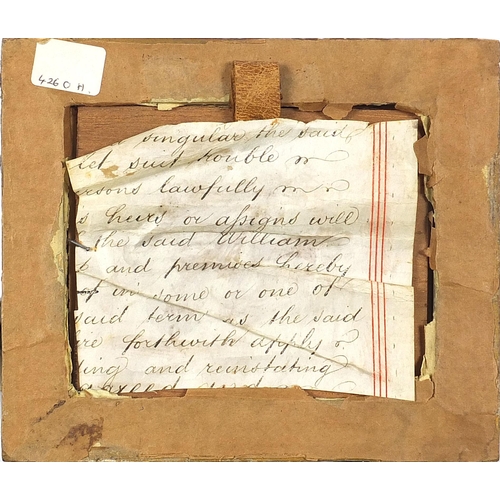 4260 H.
singular the said
let suit trouble
lawfully
heirs or assigns will
the said William
and premises hereby
of in some or one of
said term as the said
re forthwith apply
ing and reinstating
agreed and